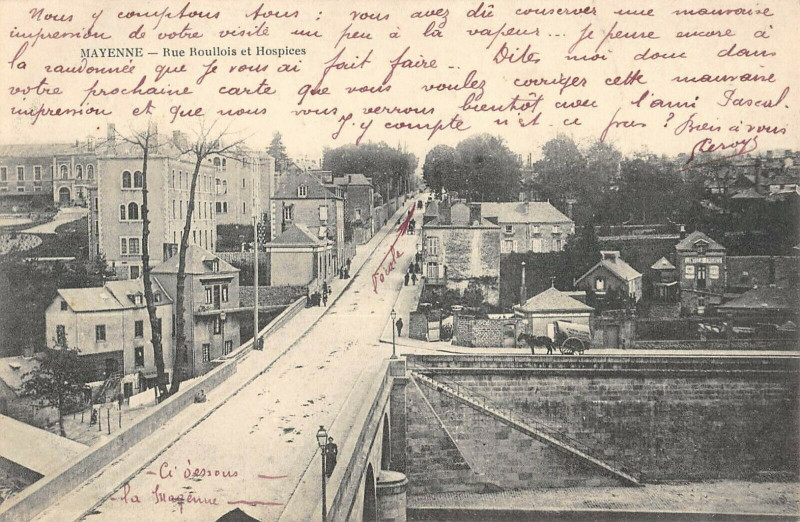 Nous y comptons tous : vous avez dû conserver une mauvaise
impression de votre visite un peu à la vapeur... Je pense encore à
MAYENNE — Rue Roullois et Hospices
la randonnée que je vous ai fait faire.. Dites moi donc dans
votre prochaine carte que vous voulez corriger cette mauvaise
impression et que nous vous verrons bientôt avec l'ami Pascal.
J'y compte n'est-ce pas ? Bien à vous
Ci dessous
la Mayenne